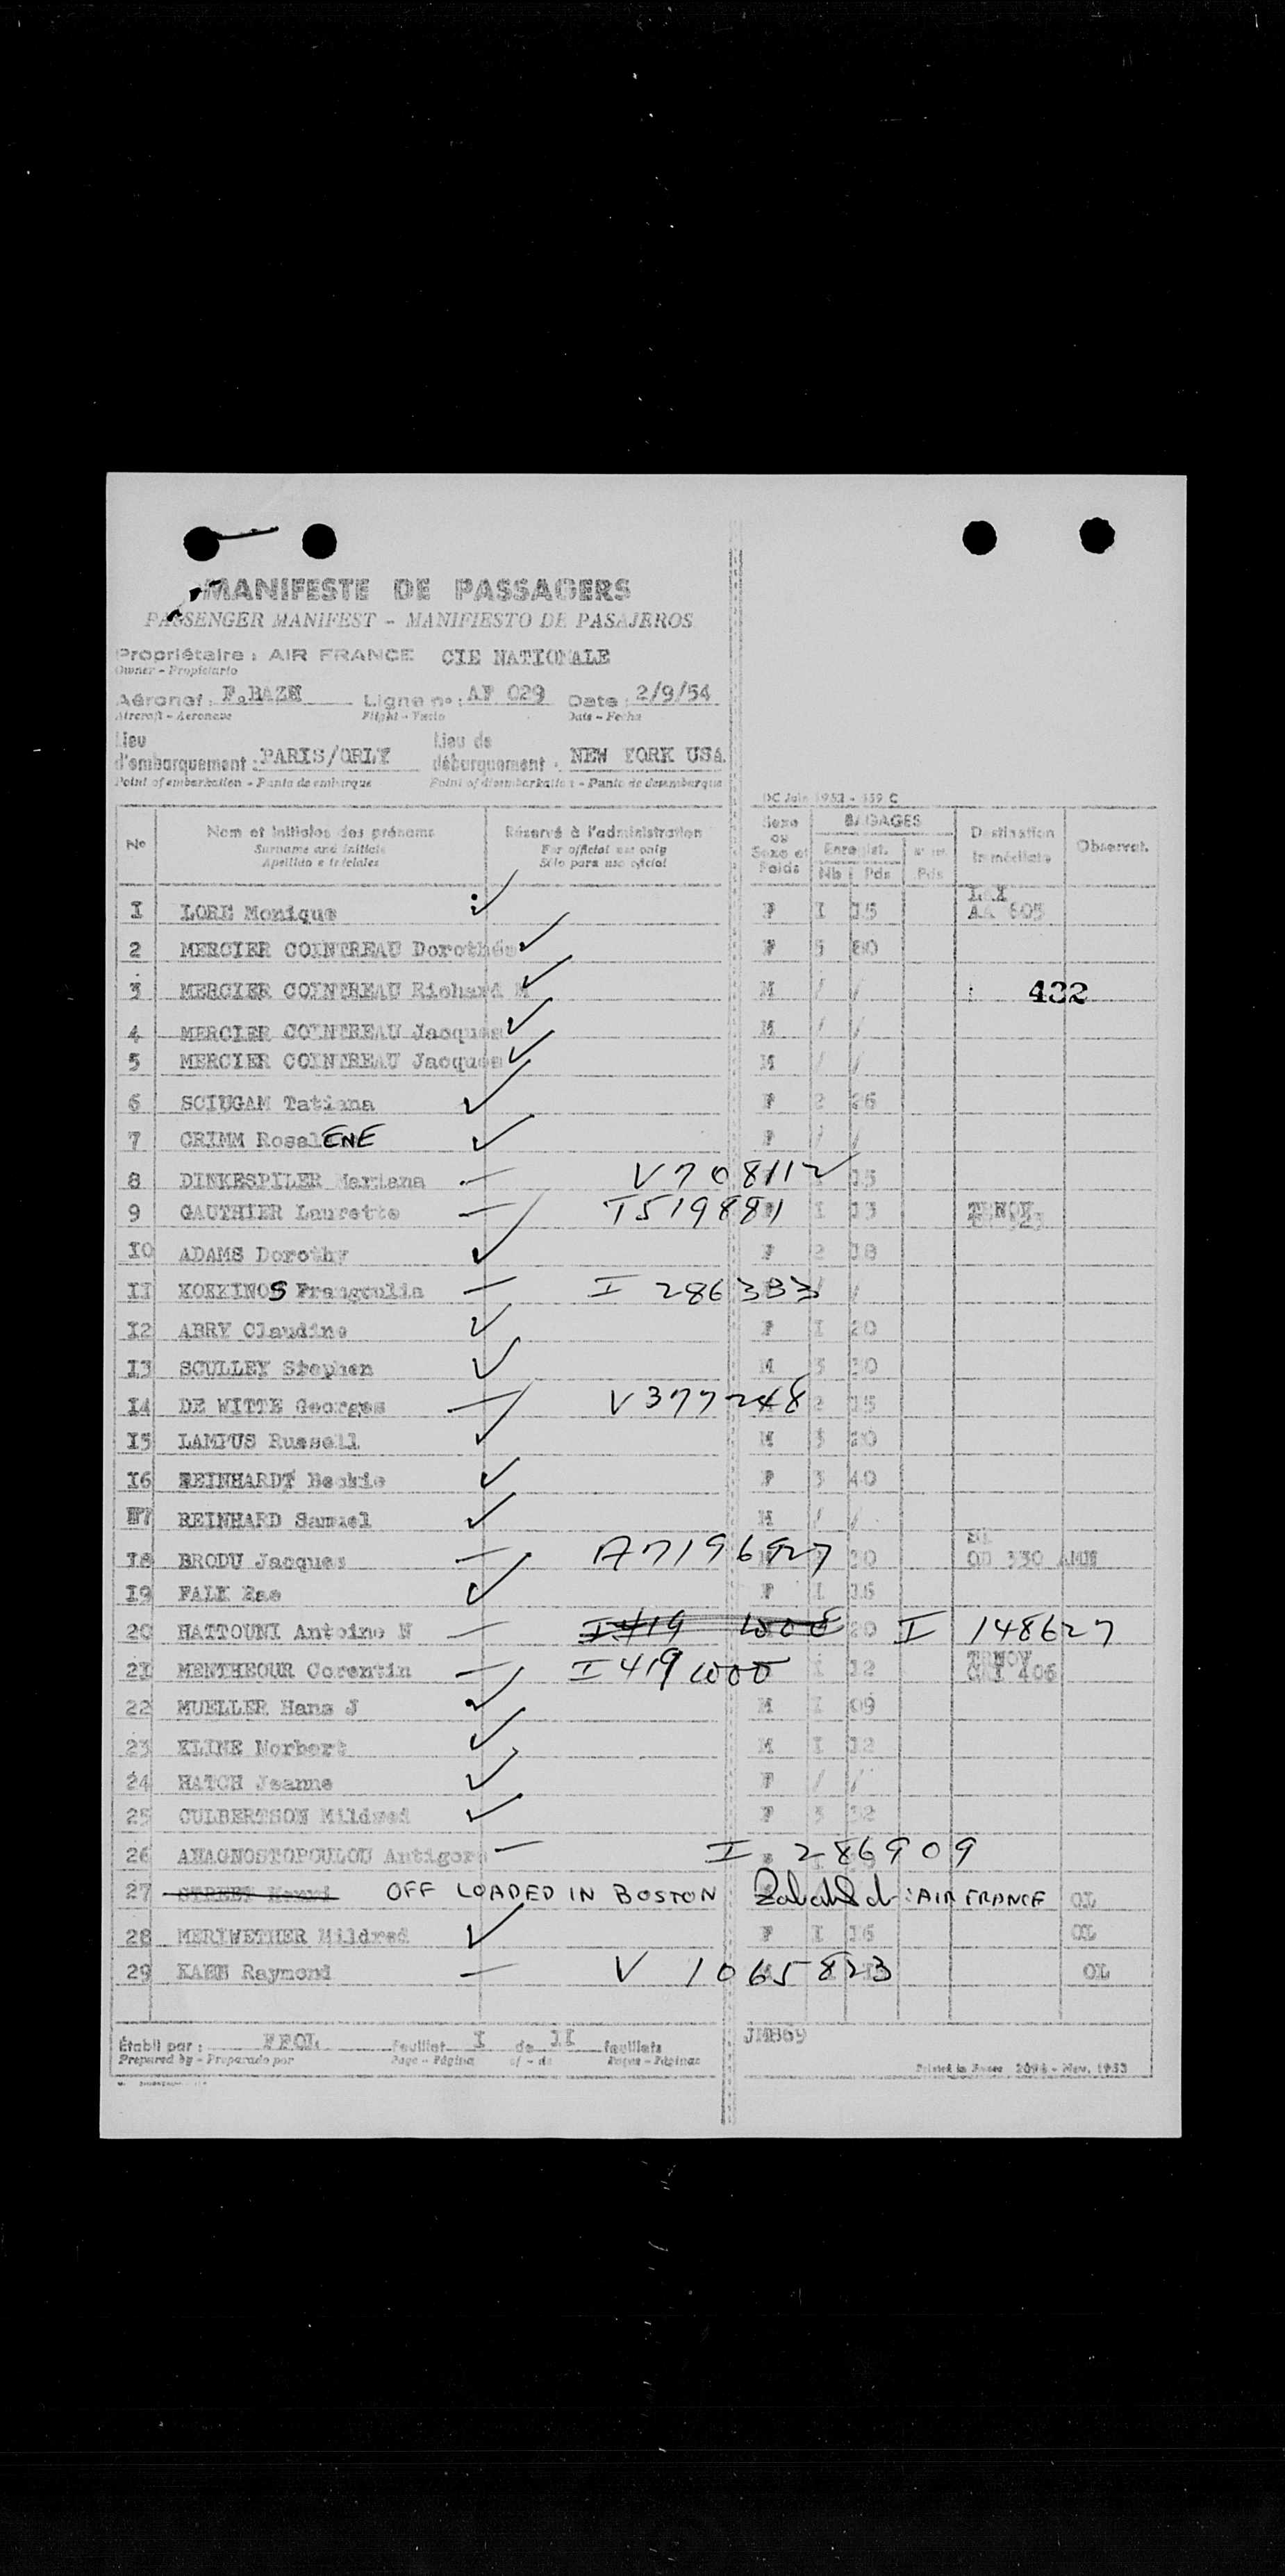 MANIFESTE DE PASSAGERS
PASSENGER MANIFEST - MANIFIESTO DE PASAJEROS
Propriétaire : AIR FRANCE CIE NATIONALE
Owner - Propietario
Aéronef : F.BAZN Ligne n° : AF 029 Date : 2/9/54
Aircraft - Aeronave Flight - Vuelo Date - Fecha
Lieu d'embarquement : PARIS/ORLY Lieu de débarquement : NEW YORK USA
Point of embarkation - Punto de embarque Point of disembarkation - Punto de desembarque
DC Juin 1952 - 339 C
N° Nom et initiales des prénoms Réservé à l'administration Sexe ou Sexe et Poids BAGAGES Destination immédiate Observat.
Surname and initials For official use only Enregist. Nb Pds Pds
Apellido e iniciales Sólo para uso oficial
I LORE Monique F I 15 LAX AA 605
2 MERCIER COINTREAU Dorothée F 5 60
3 MERCIER COINTREAU Richard M M / / 432
4 MERCIER COINTREAU Jacques M / /
5 MERCIER COINTREAU Jacques M / /
6 SCIUGAM Tatiana F 2 26
7 GRIMM RosalENE F / /
8 DINKESPILER Mariana V708112 15
9 GAUTHIER Laurette T519881 I 13 TRNOY
IO ADAMS Dorothy F 2 18
II KOKKINOS Frangoulia I 286383 / /
I2 ABRY Claudine F I 20
I3 SCULLEY Stephen M 3 30
I4 DE WITTE Georges V377248 2 15
I5 LAMPUS Russell M 3 20
I6 REINHARDT Beckie F 3 40
I7 REINHARD Samuel M / /
I8 BRODU Jacques A7196927 20 330
I9 FALK Rae F I 16
20 HATTOUNI Antoine N I 419 20 I 148627
2I MENTHEOUR Corentin I 419 I 12 TRNOY 406
22 MUELLER Hans J M I 09
23 KLINE Norbert M I 12
24 HATCH Jeanne F / /
25 CULBERTSON Mildred F 3 32
26 ANAGNOSTOPOULOU Antigone I 286909
27 STREET OFF LOADED IN BOSTON : AIR FRANCE OL
28 MERIWETHER Mildred F I 16 OL
29 Raymond V 1065823 OL
Établi par : Feuillet I de II feuillets
Prepared by - Preparado por Page - Página of - de Pages - Páginas
JMB69
Printed in France 2094 - Nov. 1953